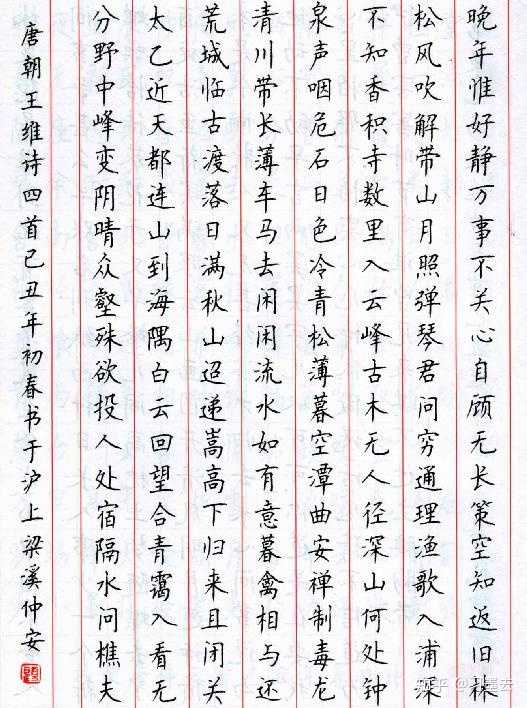 晚年惟好静万事不关心自顾无长策空知返旧林
松风吹解带山月照弹琴君问穷通理渔歌入浦深
不知香积寺数里入云峰古木无人径深山何处钟
泉声咽危石日色冷青松薄暮空潭曲安禅制毒龙
清川带长薄车马去闲闲流水如有意暮禽相与还
荒城临古渡落日满秋山迢递嵩高下归来且闭关
太乙近天都连山到海隅白云回望合青霭入看无
分野中峰变阴晴众壑殊欲投人处宿隔水问樵夫
唐朝王维诗四首己丑年初春书于沪上梁溪仲安
知乎